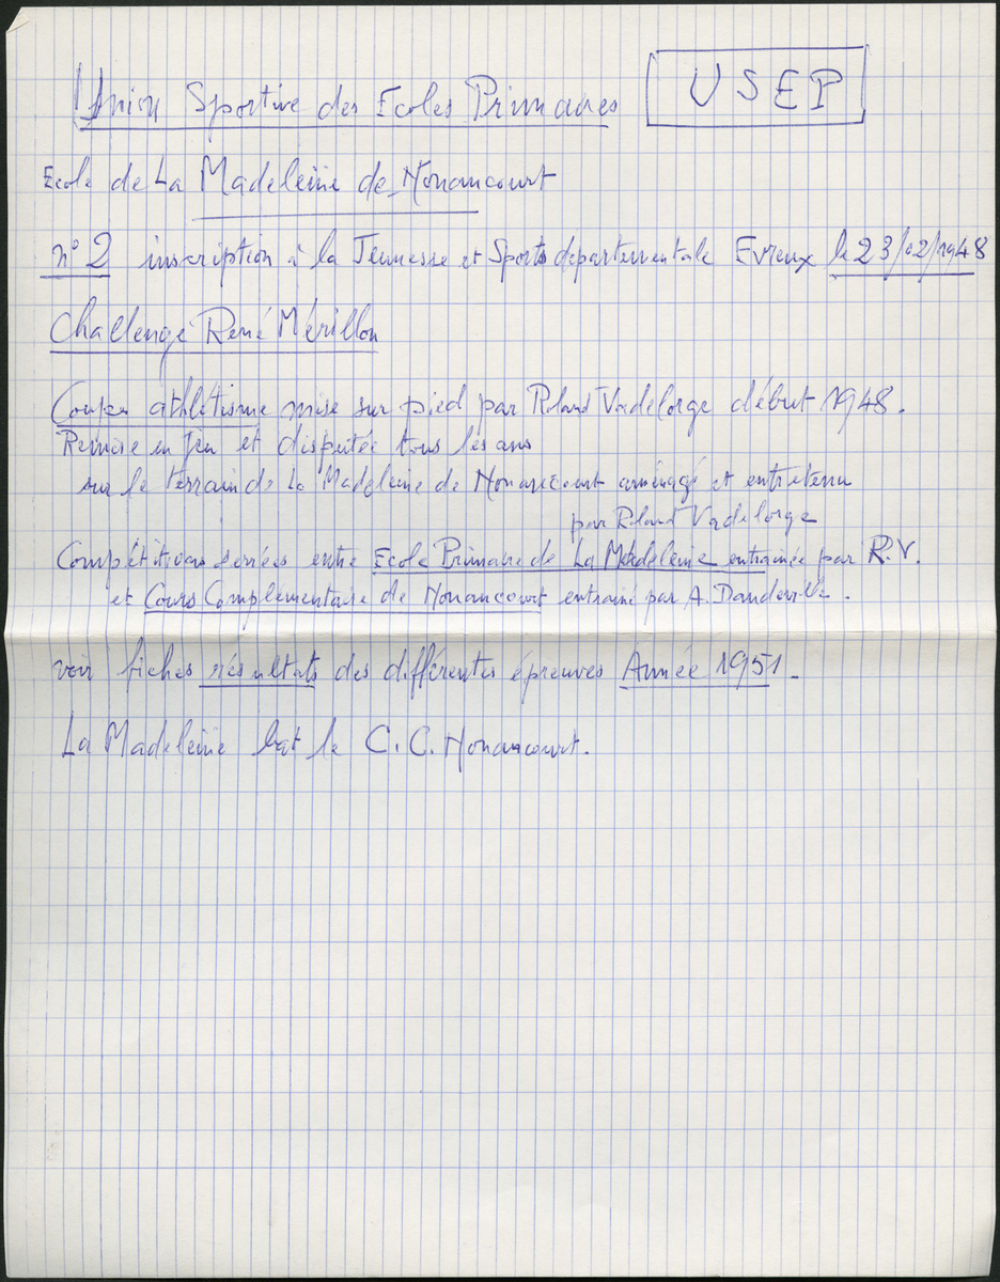 Union Sportive des Ecoles Primaires USEP
Ecole de La Madeleine de Nonancourt
n° 2 inscription à la Jeunesse et Sports départementale Evreux le 23/02/1948
Challenge René Mérillon
Coupe athlétisme mise sur pied par Roland Vadelorge début 1948.
Remise en jeu et disputée tous les ans
sur le terrain de La Madeleine de Nonancourt aménagé et entretenu
par Roland Vadelorge
Compétitions serrées entre Ecole Primaire de La Madeleine entrainée par R.V.
et Cours Complémentaire de Nonancourt entrainé par A. Dandeville.
voir fiches résultats des différentes épreuves Année 1951.
La Madeleine bat le C.C. Nonancourt.